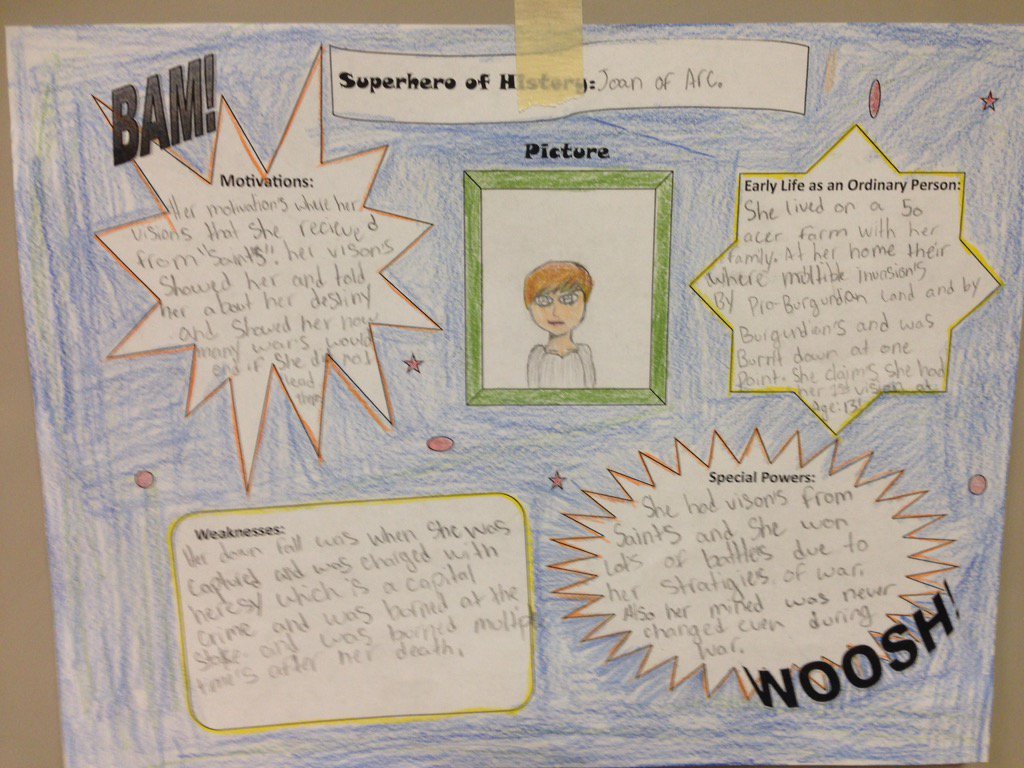 BAM!
Superhero of History: Joan of Arc.
Motivations:
Her motivations where her
visions that she recieved
from "Saints". her visons
Showed her and told
her about her destiny
and Showed her how
many war's would
end if She did not
lead
them
Picture
Early Life as an Ordinary Person:
She lived on a 50
acer farm with her
family. At her home their
where moltible invasion's
By Pro-Burgundan land and by
Burgundion's and was
Burnt down at one
Point. She claims She had
her 1st vision at
age: 13!
Weaknesses:
Her down fall was when She was
captured and was charged with
heresy which is a capital
crime and was burned at the
Stake and was burned multiple
time's after her death.
Special Powers:
She had visons from
Saints and She won
lots of battles due to
her stratigies of war.
Also her mined was never
changed even during
war.
WOOSH!